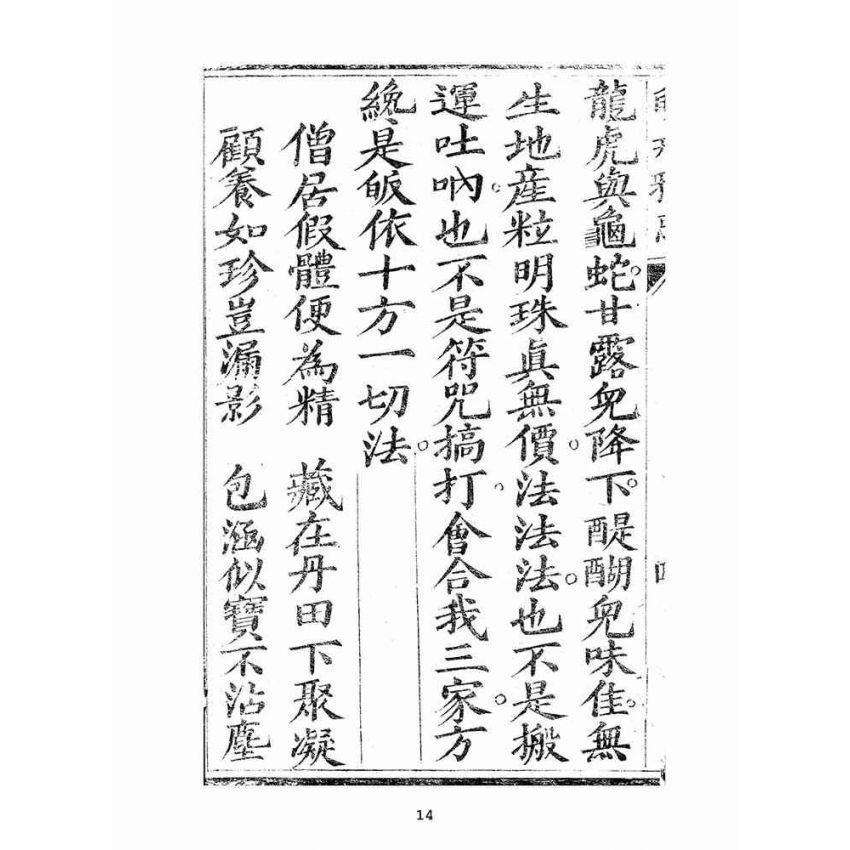 龍虎與龜蛇。甘露兒降下。醍醐兒味佳。無
生地產粒明珠眞無價。法法法。也不是搬
運吐吶。也不是符咒搞打。會合我三家。方
纔是皈依十方一切法。
僧居假體便為精　藏在丹田下聚凝
顧養如珍豈漏影　包涵似寶不沾塵
四
14